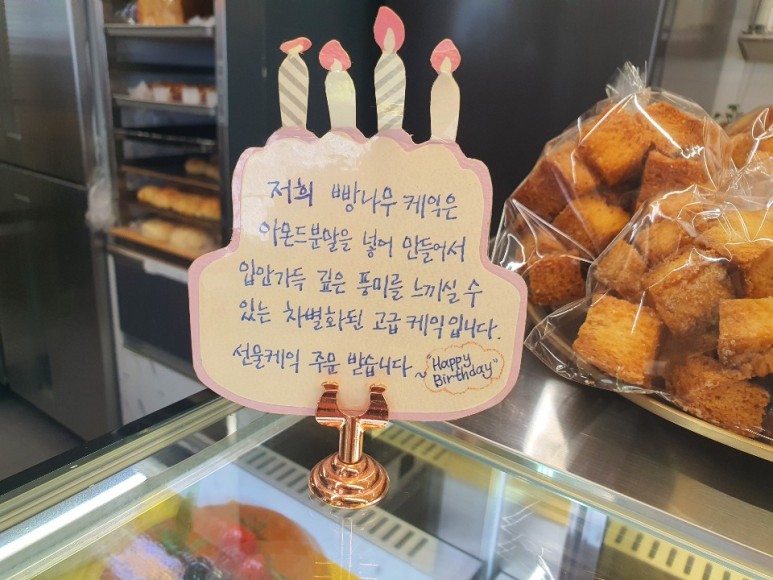 저희 빵나무 케익은
아몬드분말을 넣어 만들어서
입안가득 깊은 풍미를 느끼실 수
있는 차별화된 고급 케익입니다.
선물케익 주문 받습니다~
"Happy
Birthday"